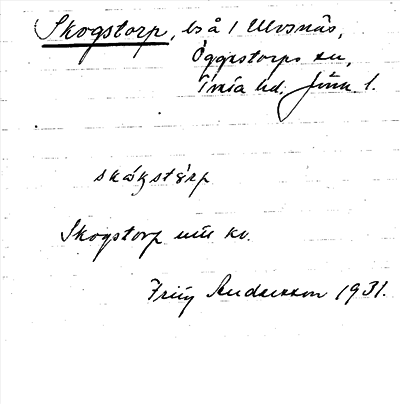 Skogstorp, bså 1 Ulvsnäs,
Öggestorps sn,
Tveta hd, Jönk. l.
skógstòrp
Skogstorp
Fritz Andersson 1931.